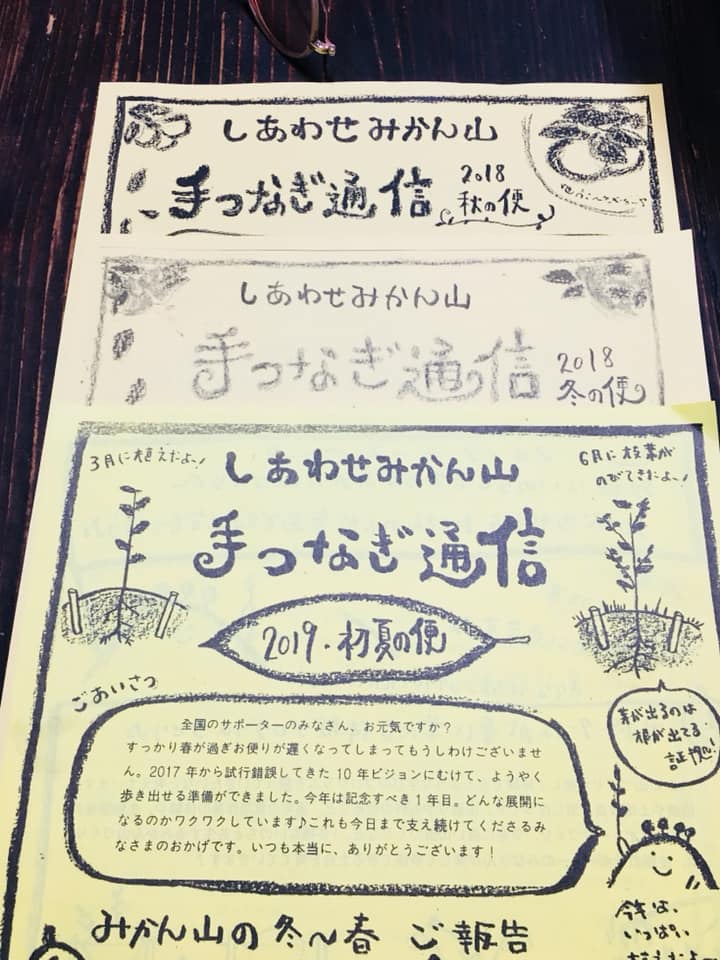 しあわせみかん山
手つなぎ通信
2018
秋の便
しあわせみかん山
手つなぎ通信
2018
冬の便
3月に植えたよ〜!
しあわせみかん山
6月に枝葉が
のびてきたよ〜!
手つなぎ通信
2019.初夏の便
ごあいさつ
全国のサポーターのみなさん、お元気ですか?
すっかり春が過ぎお便りが遅くなってしまってもうしわけございませ
ん。2017年から試行錯誤してきた10年ビジョンにむけて、ようやく
歩き出せる準備ができました。今年は記念すべき1年目。どんな展開に
なるのかワクワクしています♪これも今日まで支え続けてくださるみ
なさまのおかげです。いつも本当に、ありがとうございます!
芽が出るのは
根が出てる
証拠!
今年は、
いっぱい
みかん山の冬〜春 ご報告